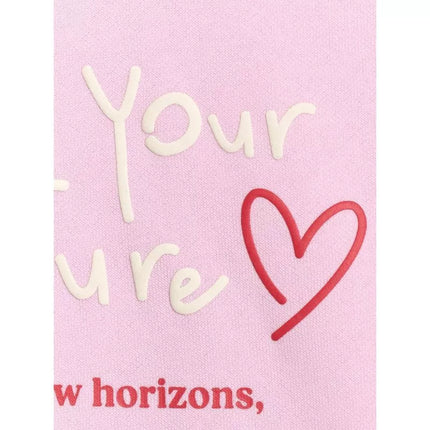 Your
ure
w horizons,